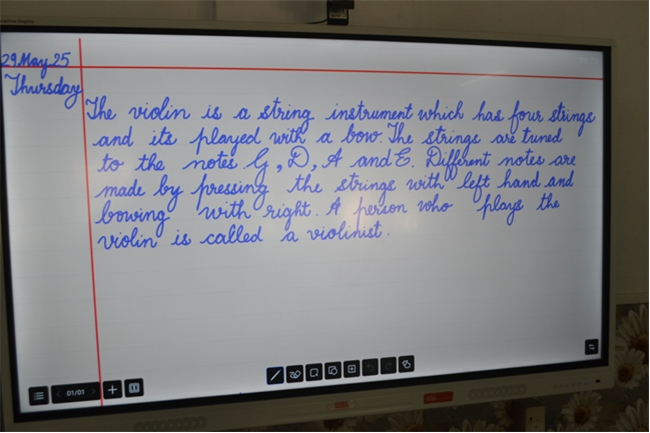 29 May 25
Thursday
The violin is a string instrument which has four strings
and its played with a bow. The strings are tuned
to the notes G, D, A and E. Different notes are
made by pressing the strings with left hand and
bowing with right. A person who plays the
violin is called a violinist.
01/01